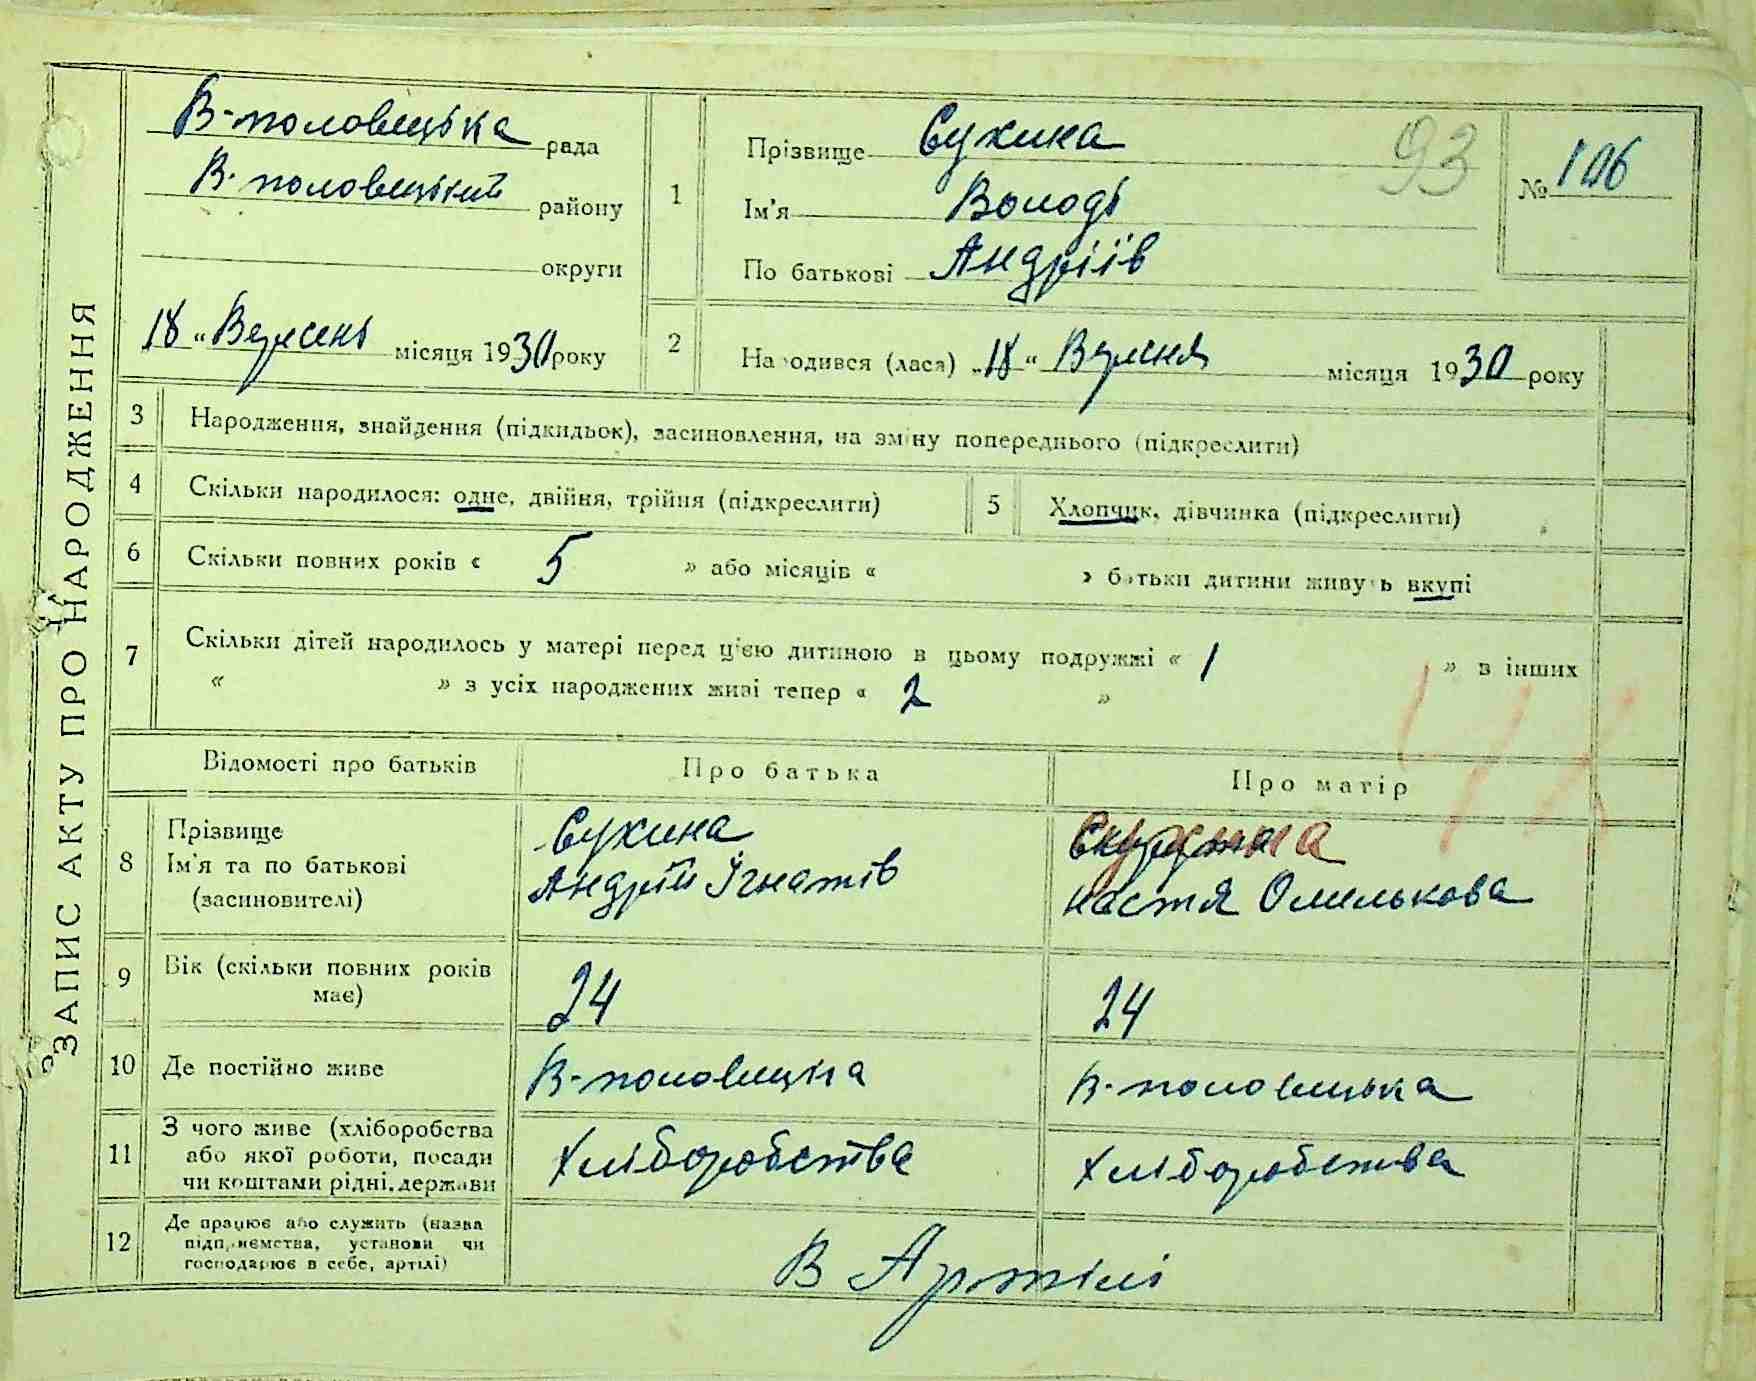 ЗАПИС АКТУ ПРО НАРОДЖЕННЯ
В-половецька рада
В. половецький району
округи
18 „ Вересень місяця 1930 року
1
Прізвище Сухина
Ім'я Володь
По батькові Андріїв
93
№ 106
2
Народився (лася) „18“ Вересня місяця 1930 року
3 Народження, знайдення (підкидьок), засиновлення, на зміну попереднього (підкреслити)
4 Скільки народилося: одне, двійня, трійня (підкреслити)
5 Хлопчик, дівчинка (підкреслити)
6 Скільки повних років « 5 » або місяців « » батьки дитини живуть вкупі
7 Скільки дітей народилось у матері перед цією дитиною в цьому подружжі « 1 » в інших
« » з усіх народжених живі тепер « 2 »
Відомості про батьків Про батька Про матір
8
Прізвище
Ім'я та по батькові
(засиновителі)
Сухина
Андрій Ігнатів
Настя Омелькова
9
Вік (скільки повних років
має)
24
24
10 Де постійно живе
В-половецька
В-половецька
11
З чого живе (хліборобства
або якої роботи, посади
чи коштами рідні, держави
Хліборобства
Хліборобства
12
Де працює або служить (назва
підприємства, установи чи
господарює в себе, артілі)
В Артілі